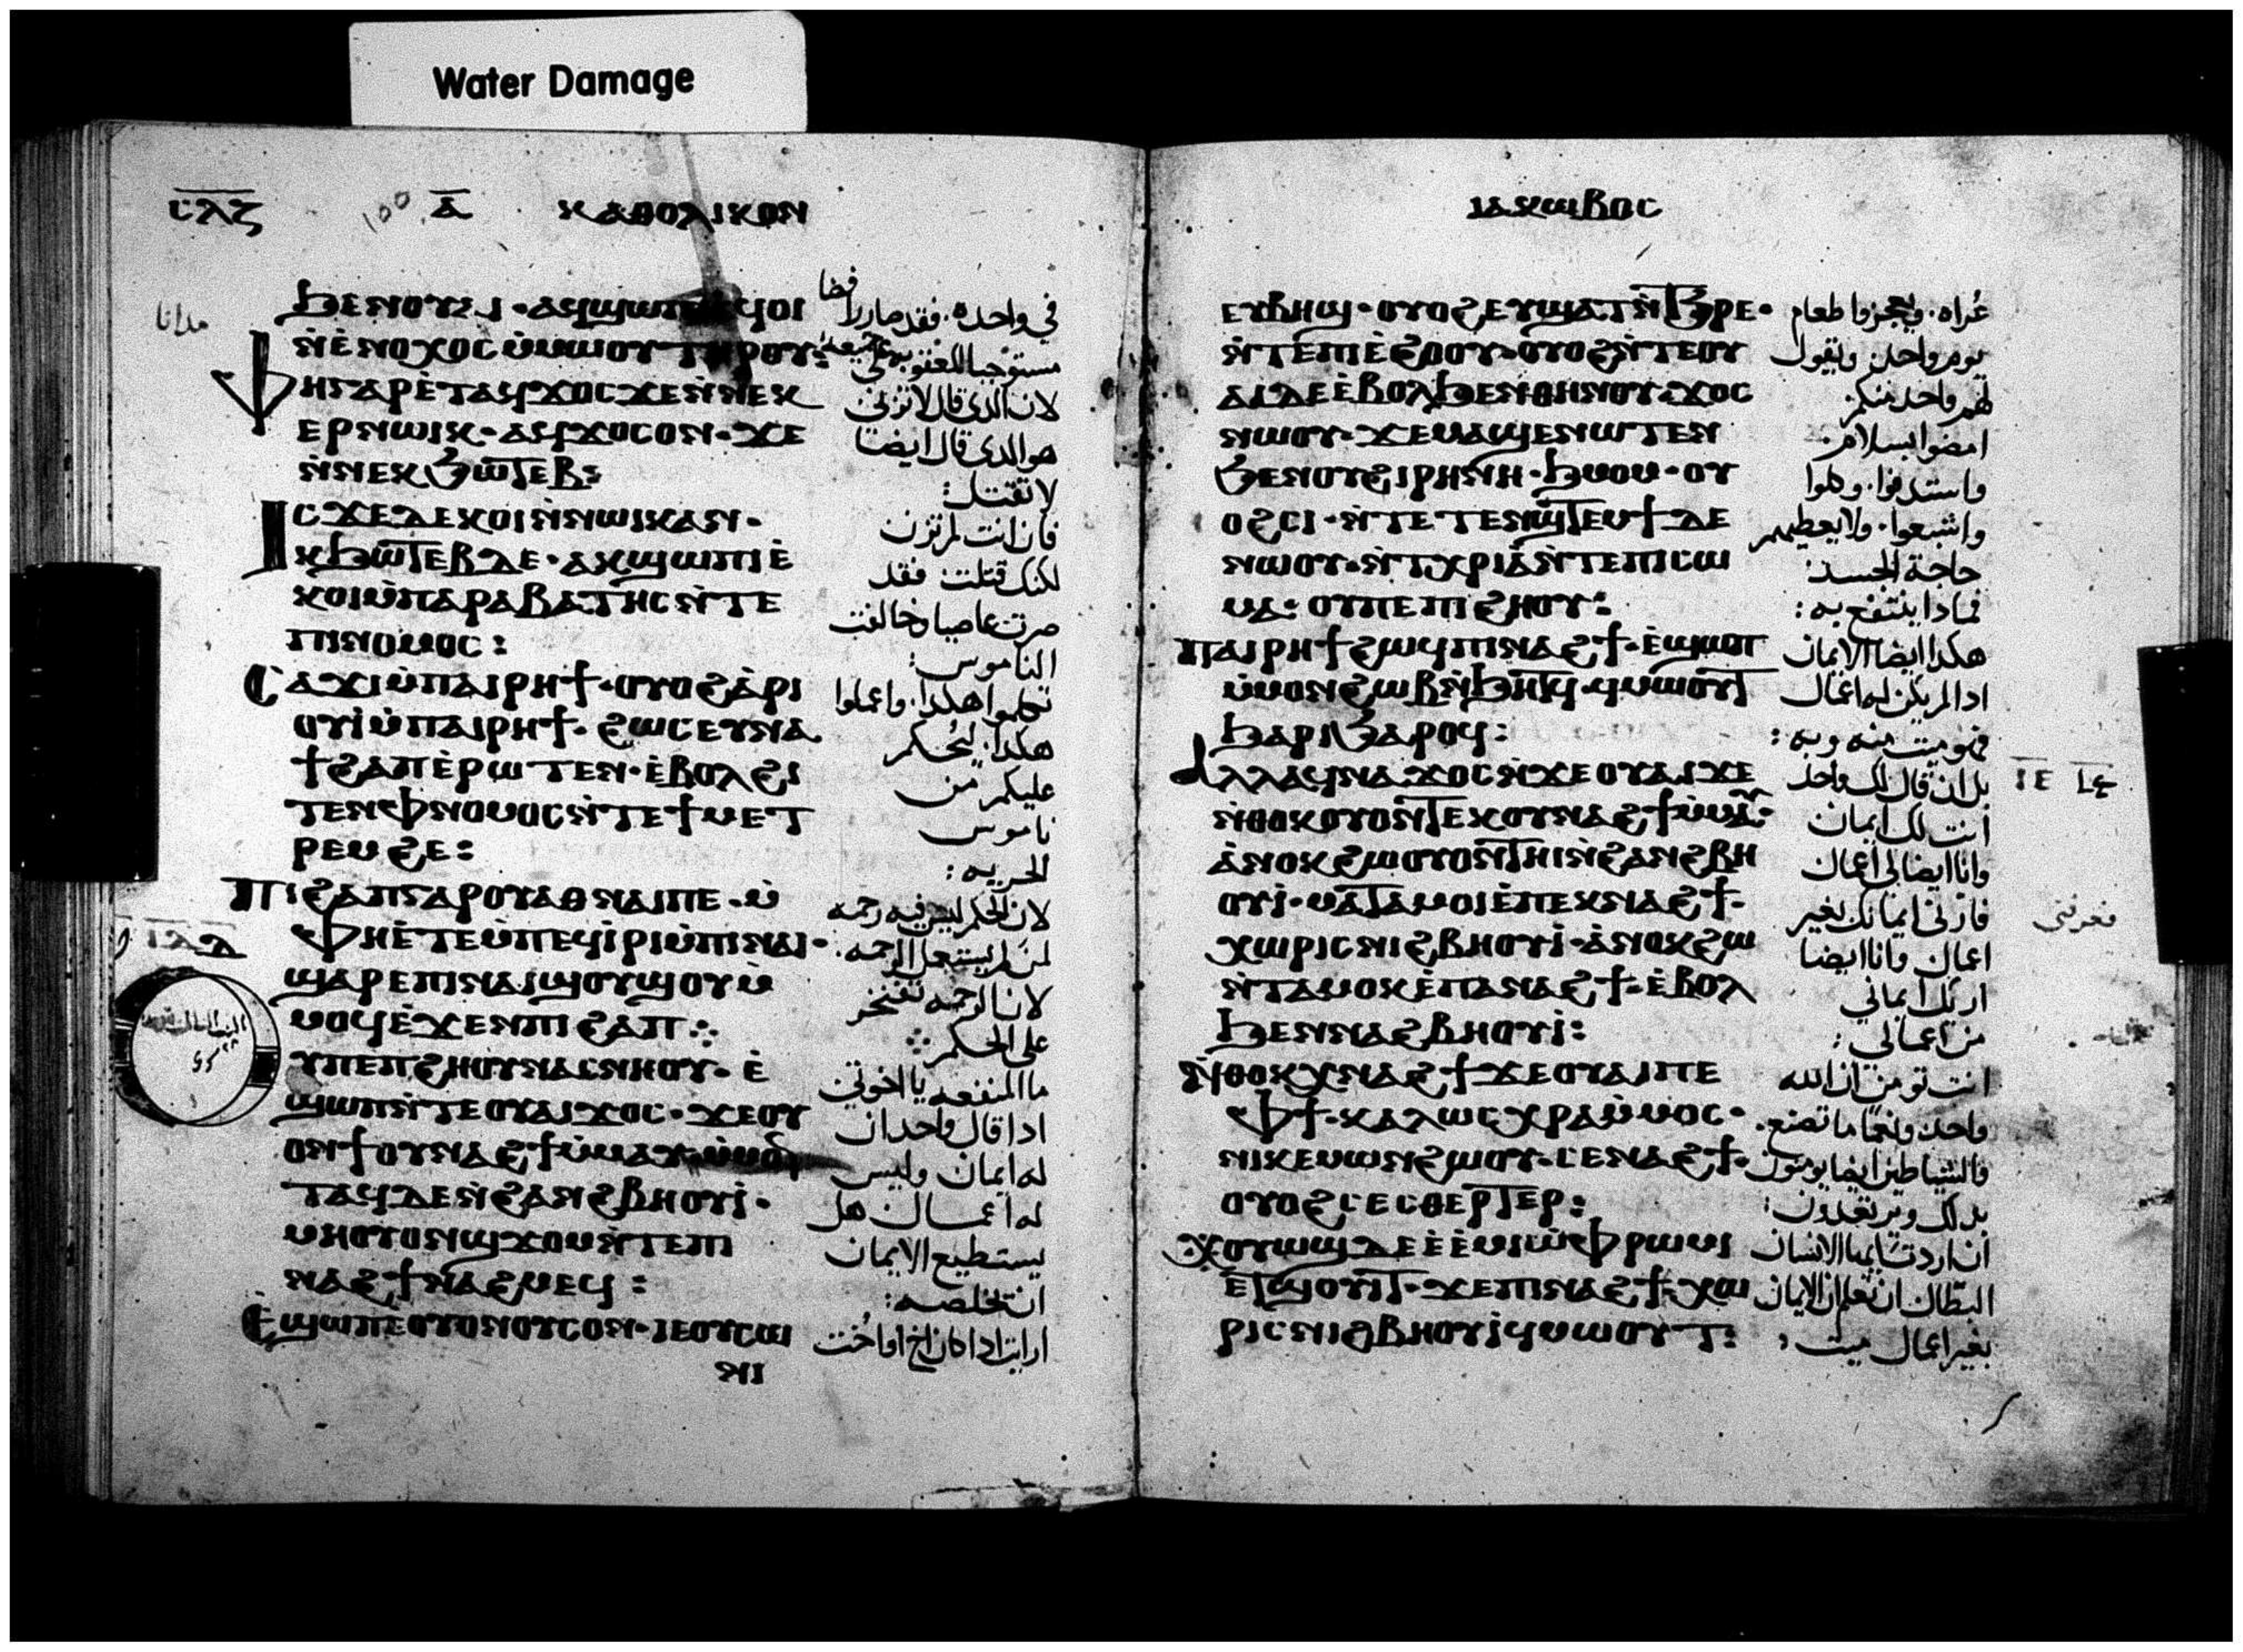 Water Damage
ⲥⲗⲍ 100 ⲁ̅ ⲕⲁⲑⲟⲗⲓⲕⲟⲛ
ϧⲉⲛⲟⲩⲁⲓ · ⲁϥϣⲱⲡⲓ ⲉϥⲟⲓ
ⲛ̀ⲉ̀ⲛⲟⲭⲟⲥ ⲙ̀ⲙⲱⲟⲩ ⲧⲏⲣⲟⲩ:
ⲫⲏⲅⲁⲣ ⲉ̀ⲧⲁϥϫⲟⲥ ϫⲉⲛⲛⲉⲕ
ⲉⲣⲛⲱⲓⲕ · ⲁϥϫⲟⲥ ⲟⲛ · ϫⲉ
ⲛ̀ⲛⲉⲕϧⲱⲧⲉⲃ:
ⲓⲥϫⲉ ⲇⲉ ⲕⲟⲓ ⲛ̀ⲛⲱⲓⲕ ⲁⲛ ·
ⲕϧⲱⲧⲉⲃ ⲇⲉ · ⲁⲕϣⲱⲡⲓ ⲉ̀
ⲕⲟⲓ ⲙ̀ⲡⲁⲣⲁⲃⲁⲧⲏⲥ ⲛ̀ⲧⲉ
ⲡⲓⲛⲟⲙⲟⲥ:
ⲥⲁϫⲓ ⲙ̀ⲡⲁⲓⲣⲏϯ · ⲟⲩⲟϩ ⲁ̀ⲣⲓ
ⲟⲩⲓ̀ ⲙ̀ⲡⲁⲓⲣⲏϯ · ϩⲱⲥ ⲉⲩⲛⲁ
ϯϩⲁⲡ ⲉ̀ⲣⲱⲧⲉⲛ · ⲉ̀ⲃⲟⲗϩⲓ
ⲧⲉⲛ ⲫⲛⲟⲙⲟⲥ ⲛ̀ⲧⲉ ϯⲙⲉⲧ
ⲣⲉⲙϩⲉ:
ⲡⲓϩⲁⲡ ⲅⲁⲣ ⲟⲩⲁⲑⲛⲁⲓ ⲡⲉ · ⲙ̀
ⲫⲏ ⲉ̀ⲧⲉ ⲙ̀ⲡⲉϥⲓ̀ⲣⲓ ⲙ̀ⲡⲓⲛⲁⲓ ·
ϣⲁⲣⲉ ⲡⲓⲛⲁⲓ ϣⲟⲩϣⲟⲩ ⲙ̀
ⲙⲟϥ ⲉ̀ϫⲉⲛ ⲡⲓϩⲁⲡ ⁘
ⲩ ⲡⲉ ⲡϩⲏⲟⲩ ⲛⲁⲥⲛⲏⲟⲩ · ⲉ̀
ϣⲱⲡ ⲛ̀ⲧⲉ ⲟⲩⲁⲓ ϫⲟⲥ · ϫⲉ ⲟⲩ
ⲟⲛϯ ⲟⲩⲛⲁϩϯ ⲙ̀ⲙⲁⲩ · ⲙ̀ⲙⲟⲛ
ⲧⲁϥ ⲇⲉ ⲛ̀ϩⲁⲛϩⲃⲏⲟⲩⲓ̀ ·
ⲙⲏ ⲟⲩⲟⲛ ϣϫⲟⲙ ⲛ̀ⲧⲉ ⲡⲓ
ⲛⲁϩϯ ⲛⲁϩⲙⲉϥ:
ⲉ̀ϣⲱⲡ ⲉⲟⲩⲟⲛ ⲟⲩⲥⲟⲛ · ⲓⲉ ⲟⲩⲥⲱ
ⲛⲓ
في واحده · فقد صار رافضا
مستوجبا للعقوبه جميعه
لان الذي قال لا تزني
هو الذي قال ايضا
لا تقتل:
فان انت لم تزن
لكنك قتلت فقد
صرت عاصيا وخالفت
الناموس:
تكلموا هكذا · واعملوا
هكذا · ليحكم
عليكم من
ناموس
الحريه:
لان الحكم ليس فيه رحمه
لمن لم يستعمل الرحمه:
لان الرحمه تفتخر
على الحكم
ما المنفعه يا اخوتي
اذا قال واحد ان
له ايمان وليس
له اعمال هل
يستطيع الايمان
ان تخلصه:
ارايت اذا كان اخ او اخت
ⲓⲁⲕⲱⲃⲟⲥ
ⲉⲩⲃⲏϣ · ⲟⲩⲟϩ ⲉⲩϣⲁⲧ ⲛ̀ϧⲣⲉ ·
ⲛ̀ⲧⲉ ⲡⲓⲉ̀ϩⲟⲟⲩ · ⲟⲩⲟϩ ⲛ̀ⲧⲉ ⲟⲩ
ⲁⲓ ⲇⲉ ⲉ̀ⲃⲟⲗϧⲉⲛ ⲑⲏⲛⲟⲩ · ϫⲟⲥ
ⲛⲱⲟⲩ · ϫⲉ ⲙⲁϣⲉⲛⲱⲧⲉⲛ
ϧⲉⲛ ⲟⲩϩⲓⲣⲏⲛⲏ · ϧⲙⲟⲙ · ⲟⲩ
ⲟϩ ⲥⲓ · ⲛ̀ⲧⲉⲧⲉⲛϣⲧⲉⲙϯ ⲇⲉ
ⲛⲱⲟⲩ · ⲛ̀ⲧⲭⲣⲓⲁ̀ ⲛ̀ⲧⲉ ⲡⲓⲥⲱ
ⲙⲁ · ⲟⲩ ⲡⲉ ⲡⲓϩⲏⲟⲩ:
ⲡⲁⲓⲣⲏϯ ϩⲱϥ ⲡⲓⲛⲁϩϯ · ⲉ̀ϣⲱⲡ
ⲙ̀ⲙⲟⲛ ϩⲱⲃ ⲛ̀ϧⲏⲧϥ · ϥⲙⲱⲟⲩⲧ
ϧⲁⲣⲓϧⲁⲣⲟϥ:
ⲁⲗⲗⲁ ϥⲛⲁϫⲟⲥ ⲛ̀ϫⲉ ⲟⲩⲁⲓ ϫⲉ
ⲛ̀ⲑⲟⲕ ⲟⲩⲟⲛⲧⲉⲕ ⲟⲩⲛⲁϩϯ ⲙ̀ⲙⲁⲩ ·
ⲁ̀ⲛⲟⲕ ϩⲱ ⲟⲩⲟⲛⲧⲏⲓ ⲛ̀ϩⲁⲛϩⲃⲏ
ⲟⲩⲓ̀ · ⲙⲁⲧⲁⲙⲟⲓ ⲉ̀ⲡⲉⲕⲛⲁϩϯ ·
ⲭⲱⲣⲓⲥ ⲛⲓϩⲃⲏⲟⲩⲓ̀ · ⲁ̀ⲛⲟⲕ ϩⲱ
ⲛ̀ⲧⲁⲙⲟⲕ ⲉ̀ⲡⲁⲛⲁϩϯ · ⲉ̀ⲃⲟⲗ
ϧⲉⲛ ⲛⲁϩⲃⲏⲟⲩⲓ̀:
ⲛ̀ⲑⲟⲕ ⲭⲛⲁϩϯ ϫⲉ ⲟⲩⲁⲓ ⲡⲉ
ⲫϯ · ⲕⲁⲗⲱⲥ ⲭⲣⲁ ⲙ̀ⲙⲟⲥ ·
ⲛⲓⲕⲉⲙⲱⲛ ϩⲱⲟⲩ · ⲥⲉⲛⲁϩϯ ·
ⲟⲩⲟϩ ⲥⲉⲥⲑⲉⲣⲧⲉⲣ:
ⲭⲟⲩⲱϣ ⲇⲉ ⲉ̀ⲉ̀ⲙⲓ ⲱ̀ ⲫⲣⲱⲙⲓ
ⲉⲧϣⲟⲩⲓⲧ · ϫⲉ ⲡⲓⲛⲁϩϯ · ⲭⲱ
ⲣⲓⲥ ⲛⲓϩⲃⲏⲟⲩⲓ̀ ϥⲙⲱⲟⲩⲧ:
عراه · وعجزوا طعام
يوم واحد · ويقول
لهم واحد منكم
امضوا بسلام
واستدفوا · وكلوا
واشبعوا · ولا يعطيهم
حاجة الجسد:
فماذا ينتفع به:
هكذا ايضا الايمان
اذا لم يكن له اعمال
فهو ميت منه وبه:
بل ان قال لك واحد
انت لك ايمان
وانا ايضا لي اعمال
فارني ايمانك بغير
اعمال وانا ايضا
اريك ايماني
من اعمالي:
انت تومن ان الله
واحد ونعما ما تصنع ·
والشياطين ايضا يومنون
بذلك ويرتعدون:
ان اردت ايها الانسان
البطال ان تعلم ان الايمان
بغير اعمال ميت:
ⲓⲉ